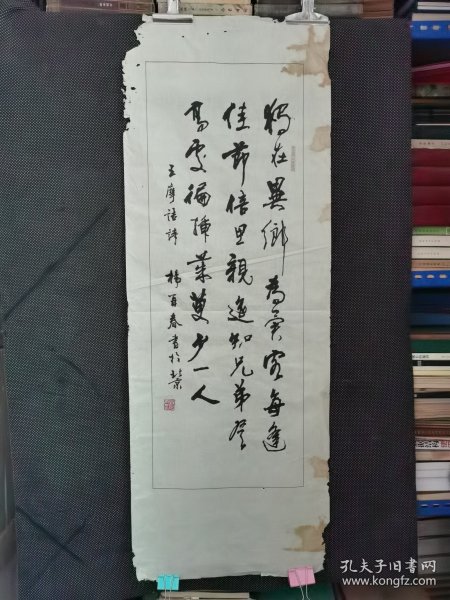 獨在異鄉為異客每逢
佳節倍思親遥知兄弟登
高處徧插茱萸少一人
王摩詰詩 楊再春書於北京
孔夫子旧书网
www.kongfz.com